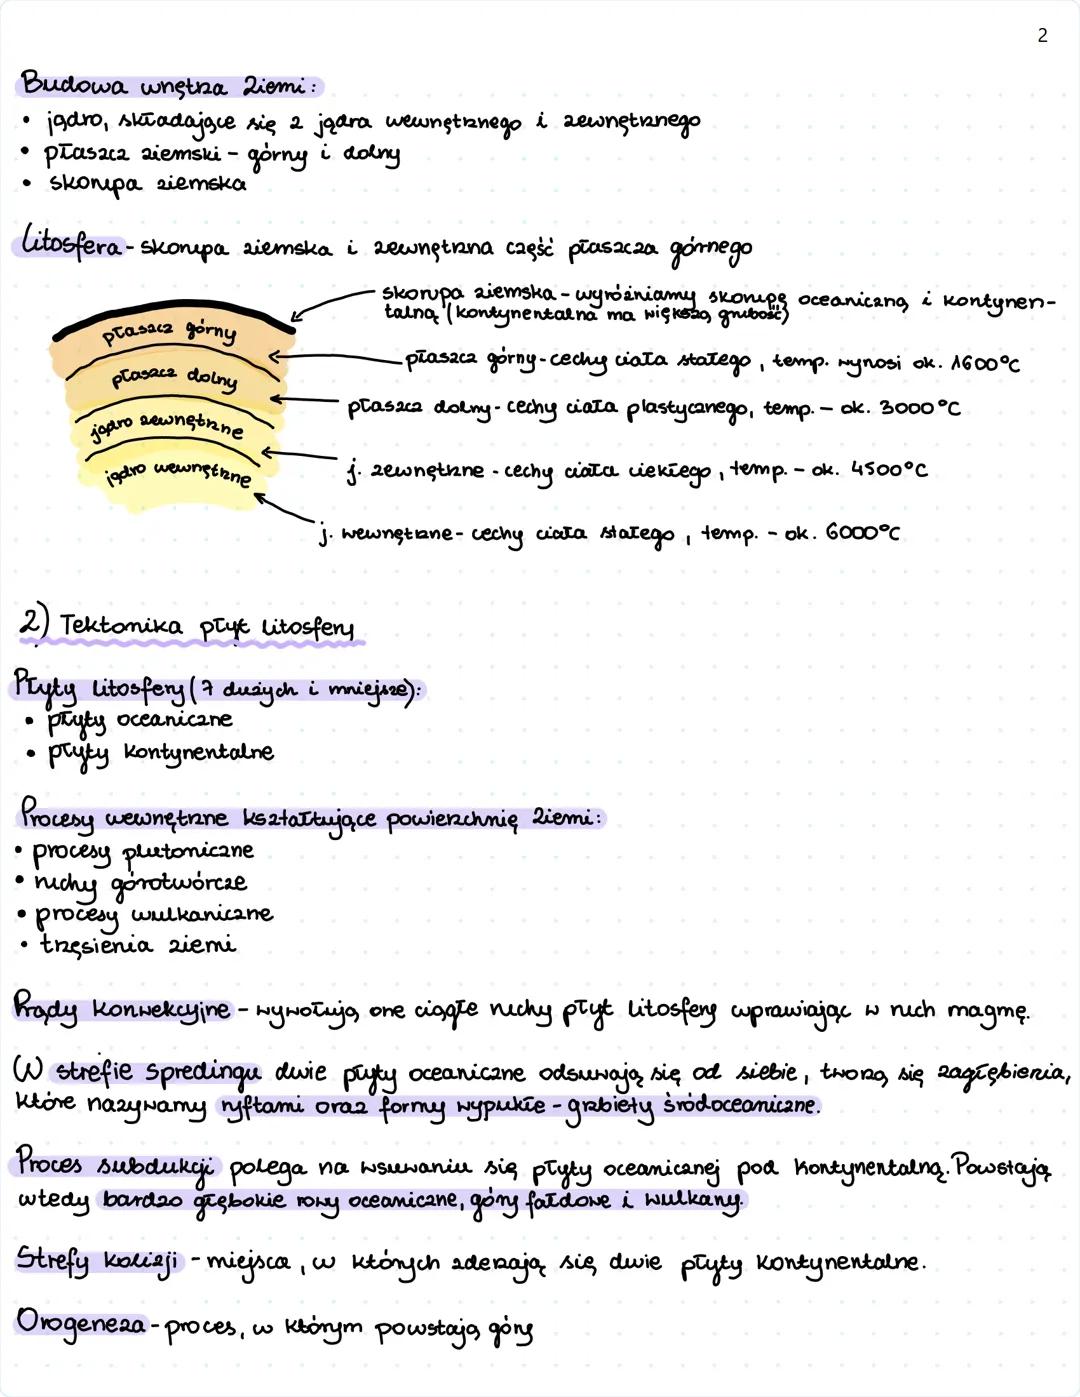 2
Budowa wnętrza Ziemi:
• jądro, składające się z jądra wewnętrznego i zewnętrznego
• płaszcz ziemski - górny i dolny
• skorupa ziemska
Litosfera - skorupa ziemska i zewnętrzna część płaszcza górnego
skorupa ziemska - wyróżniamy skorupę oceaniczną i kontynen-
talną (kontynentalna ma większą grubość)
płaszcz górny
płaszcz górny - cechy ciała stałego, temp. wynosi ok. 1600°C
płaszcz dolny
płaszcz dolny - cechy ciała plastycznego, temp. - ok. 3000°C
jądro zewnętrzne
j. zewnętrzne - cechy ciała ciekłego, temp. - ok. 4500°C
jądro wewnętrzne
j. wewnętrzne - cechy ciała stałego, temp. - ok. 6000°C
2) Tektonika płyt litosfery
Płyty litosfery (7 dużych i mniejsze):
• płyty oceaniczne
• płyty kontynentalne
Procesy wewnętrzne kształtujące powierzchnię Ziemi:
• procesy plutoniczne
• ruchy górotwórcze
• procesy wulkaniczne
• trzęsienia ziemi
Prądy konwekcyjne - wywołują one ciągłe ruchy płyt litosfery wprawiając w ruch magmę.
W strefie spredingu dwie płyty oceaniczne odsuwają się od siebie, tworzą się zagłębienia,
które nazywamy ryftami oraz formy wypukłe - grzbiety śródoceaniczne.
Proces subdukcji polega na wsuwaniu się płyty oceanicznej pod kontynentalną. Powstają
wtedy bardzo głębokie rowy oceaniczne, góry fałdowe i wulkany.
Strefy kolizji - miejsca, w których zderzają się dwie płyty kontynentalne.
Orogeneza - proces, w którym powstają góry